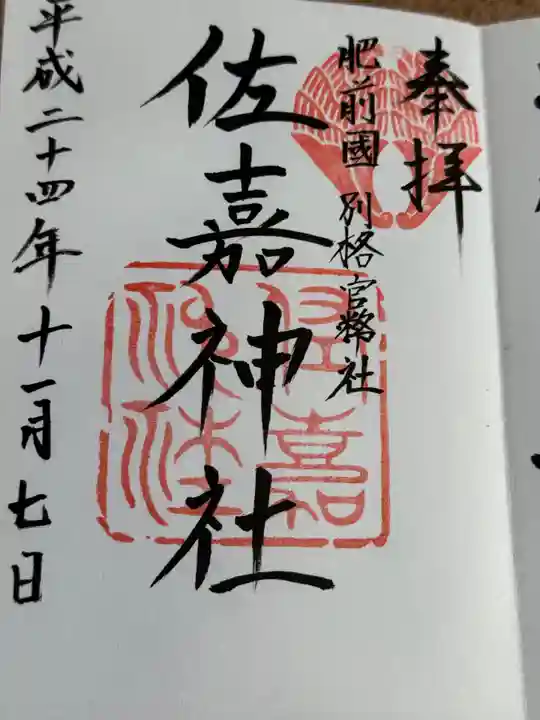 奉拝
肥前國 別格官幣社
佐嘉神社
平成二十四年十一月七日
佐嘉
神社